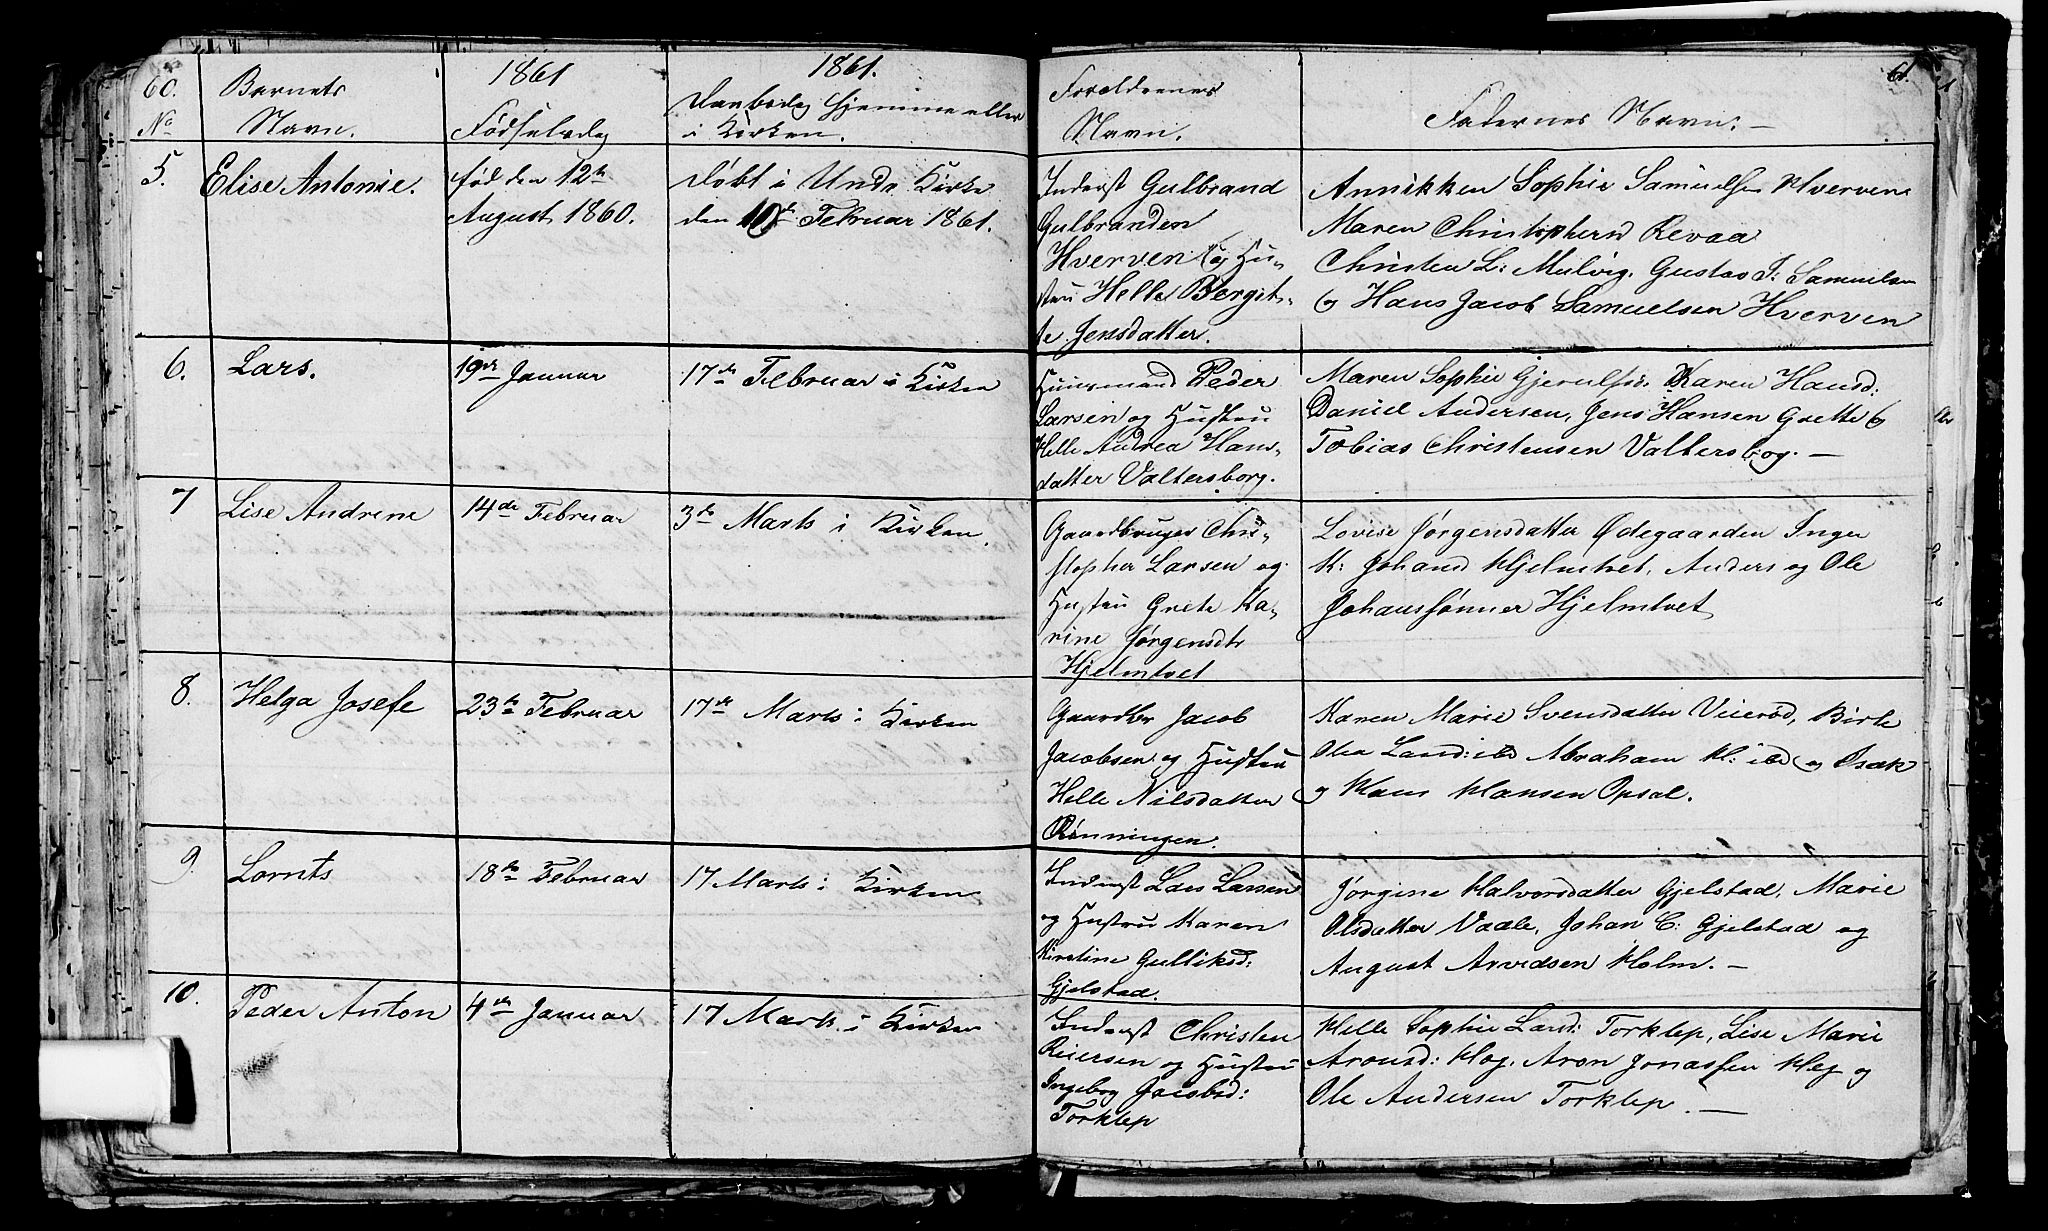 60.
1861
1861.
61.
No
Barnets
Navn.
Födselsdag
Daabsdag hjemme eller
i Kirken.
Forældrenes
Navn.
Fadernes Navn. —
5.
Elise Antonie.
född den 12te
August 1860.
Døbt i Unds. Kirke
den 10de Februar 1861.
Inderst Gulbrand
Gulbrandsen
Hverven og Hu-
stru Helle Bergit-
te Jensdatter.
Annikken Sophie Samuelsen Hverven
Maren Christophersd Revaa
Christen L: Mulvig, Gustav J: Samuelsen
og Hans Jacob Samuelsen Hverven
6.
Lars.
19de Januar
17de Februar i Kirken
Huusmand Peder
Larsen og Hustru
Helle Andrea Hans-
datter Valtersborg.
Maren Sophie Gjerulfsd. Karen Hansd:
Daniel Andersen, Jens Hansen Grette og
Tobias Christensen Valtersbog. —
7
Lise Andrine
14de Februar
3de Marts i Kirken.
Gaardbruger Chri-
stopher Larsen og
Hustru Grete Ka-
rine Jørgensdtr
Hjelmtvet
Lovise Jørgensdatter Ødegaarden Inger
K: Johansd Hjelmtvet, Anders og Ole
Johansønner Hjelmtvet
8.
Helga Josefe
23de Februar
17de Marts i Kirken
Gaardbr Jacob
Jacobsen og Hustru
Helle Nilsdatter
Rönningen.
Karen Marie Svensdatter Veierød, Birte
Olea Larsd: ibd Abraham H: ibd og Isak
og Hans Hansen Opsal.
9.
Lornts
18de Februar
17 Marts i Kirken
Inderst Lars Larsen
og Hustru Karen
Kirstine Gulliksd:
Gjelstad.
Jørgine Halvorsdatter Gjelstad, Marie
Olsdatter Vaale, Johan C: Gjelstad og
August Arvedsen Holm. —
10.
Peder Anton
4de Januar
17 Marts i Kirken
Inderst Christen
Reiersen og Hustru
Ingebog Jacobsd:
Torklep
Helle Sophie Larsd: Torklep, Lise Marie
Aronsd: Høg, Aron Jonassen Høg og
Ole Andersen Torklep. —